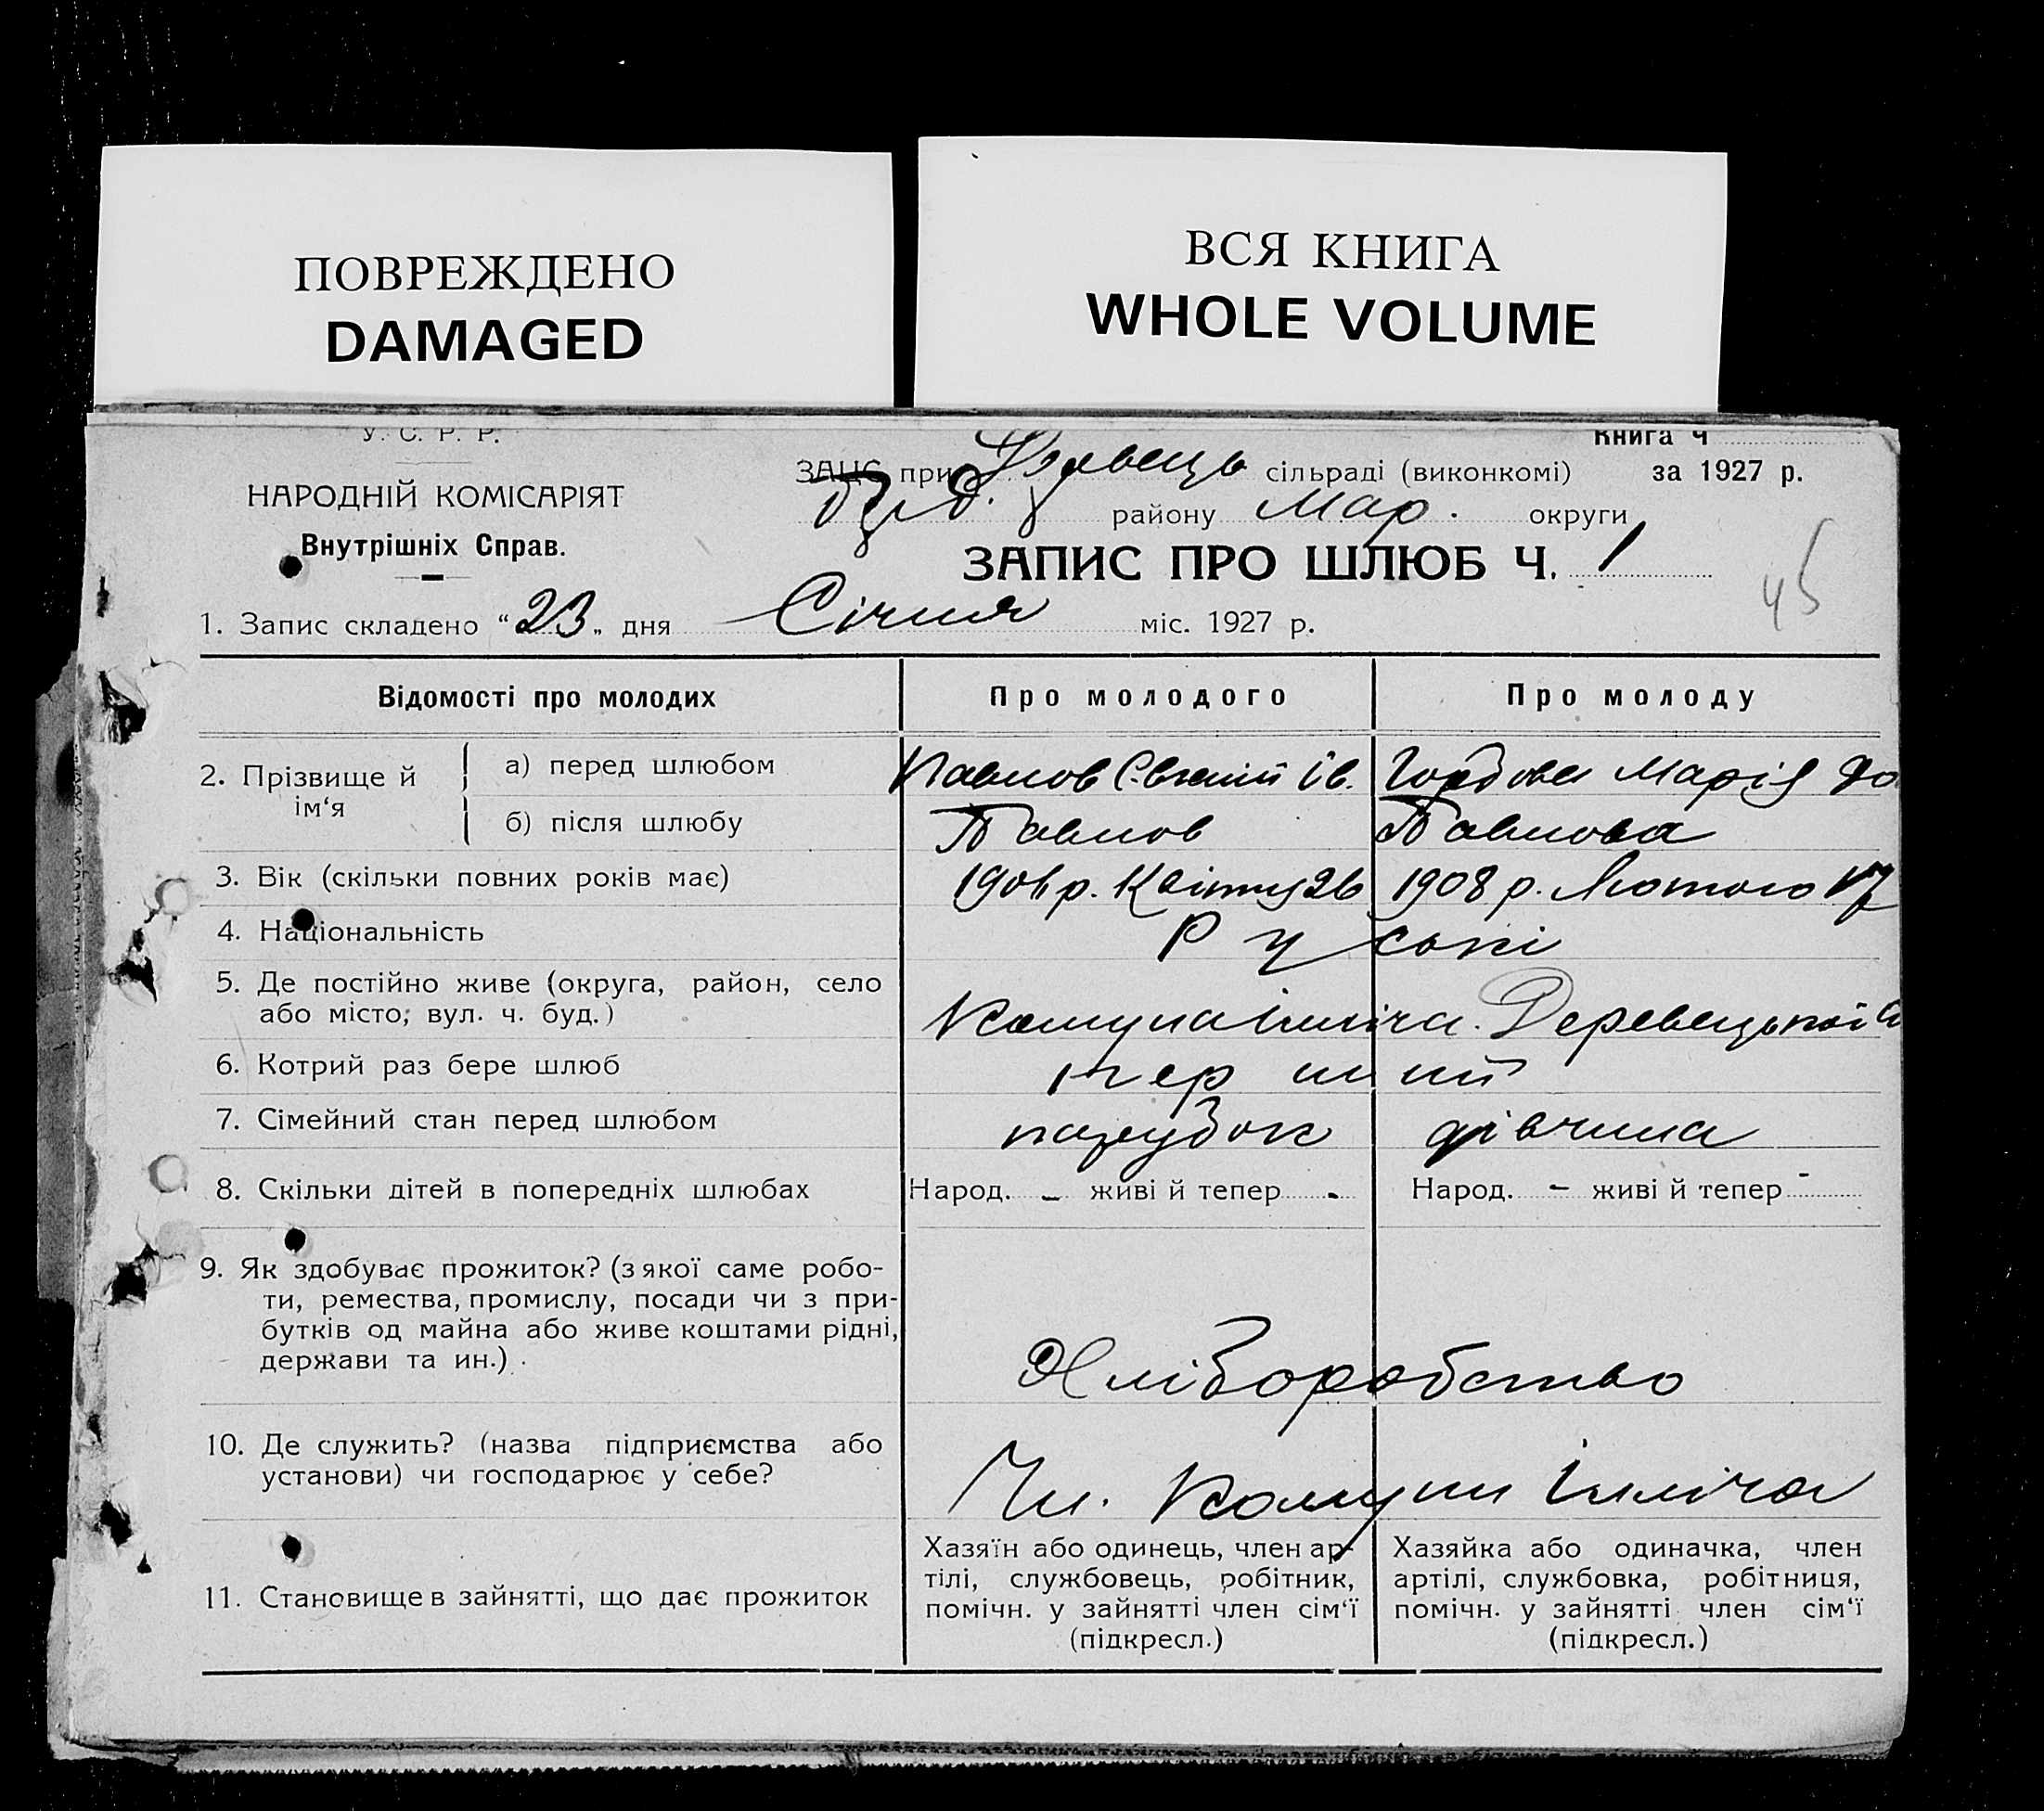 ПОВРЕЖДЕНО
DAMAGED
ВСЯ КНИГА
WHOLE VOLUME
У. С. Р. Р.
НАРОДНІЙ КОМІСАРІЯТ
Внутрішніх Справ.
Книга Ч
ЗАЦС при сільраді (виконкомі) за 1927 р.
району Мар. округи
ЗАПИС ПРО ШЛЮБ Ч. 1
45
1. Запис складено “23„ дня Січня міс. 1927 р.
Відомості про молодих Про молодого Про молоду
2. Прізвище й ім‘я
а) перед шлюбом Павлов Ів. Марія
б) після шлюбу Павлов Павлова
3. Вік (скільки повних років має) р. Квітня 26 1908 р. Лютого 17
4. Національність Руські
5. Де постійно живе (округа, район, село
або місто, вул. ч. буд.) Комуна Ілліча.
6. Котрий раз бере шлюб перший
7. Сімейний стан перед шлюбом парубок дівчина
8. Скільки дітей в попередніх шлюбах Народ. – живі й тепер - Народ. – живі й тепер -
9. Як здобуває прожиток? (з якої саме робо-
ти, ремества, промислу, посади чи з при-
бутків од майна або живе коштами рідні,
держави та ин.) Хліборобство
10. Де служить? (назва підприємства або
установи) чи господарює у себе? Чл. Комуни Ілліча
11. Становище в зайнятті, що дає прожиток
Хазяїн або одинець, член ар-
тілі, службовець, робітник,
помічн. у зайнятті член сім‘ї
(підкресл.)
Хазяйка або одиначка, член
артілі, службовка, робітниця,
помічн. у зайнятті член сім‘ї
(підкресл.)